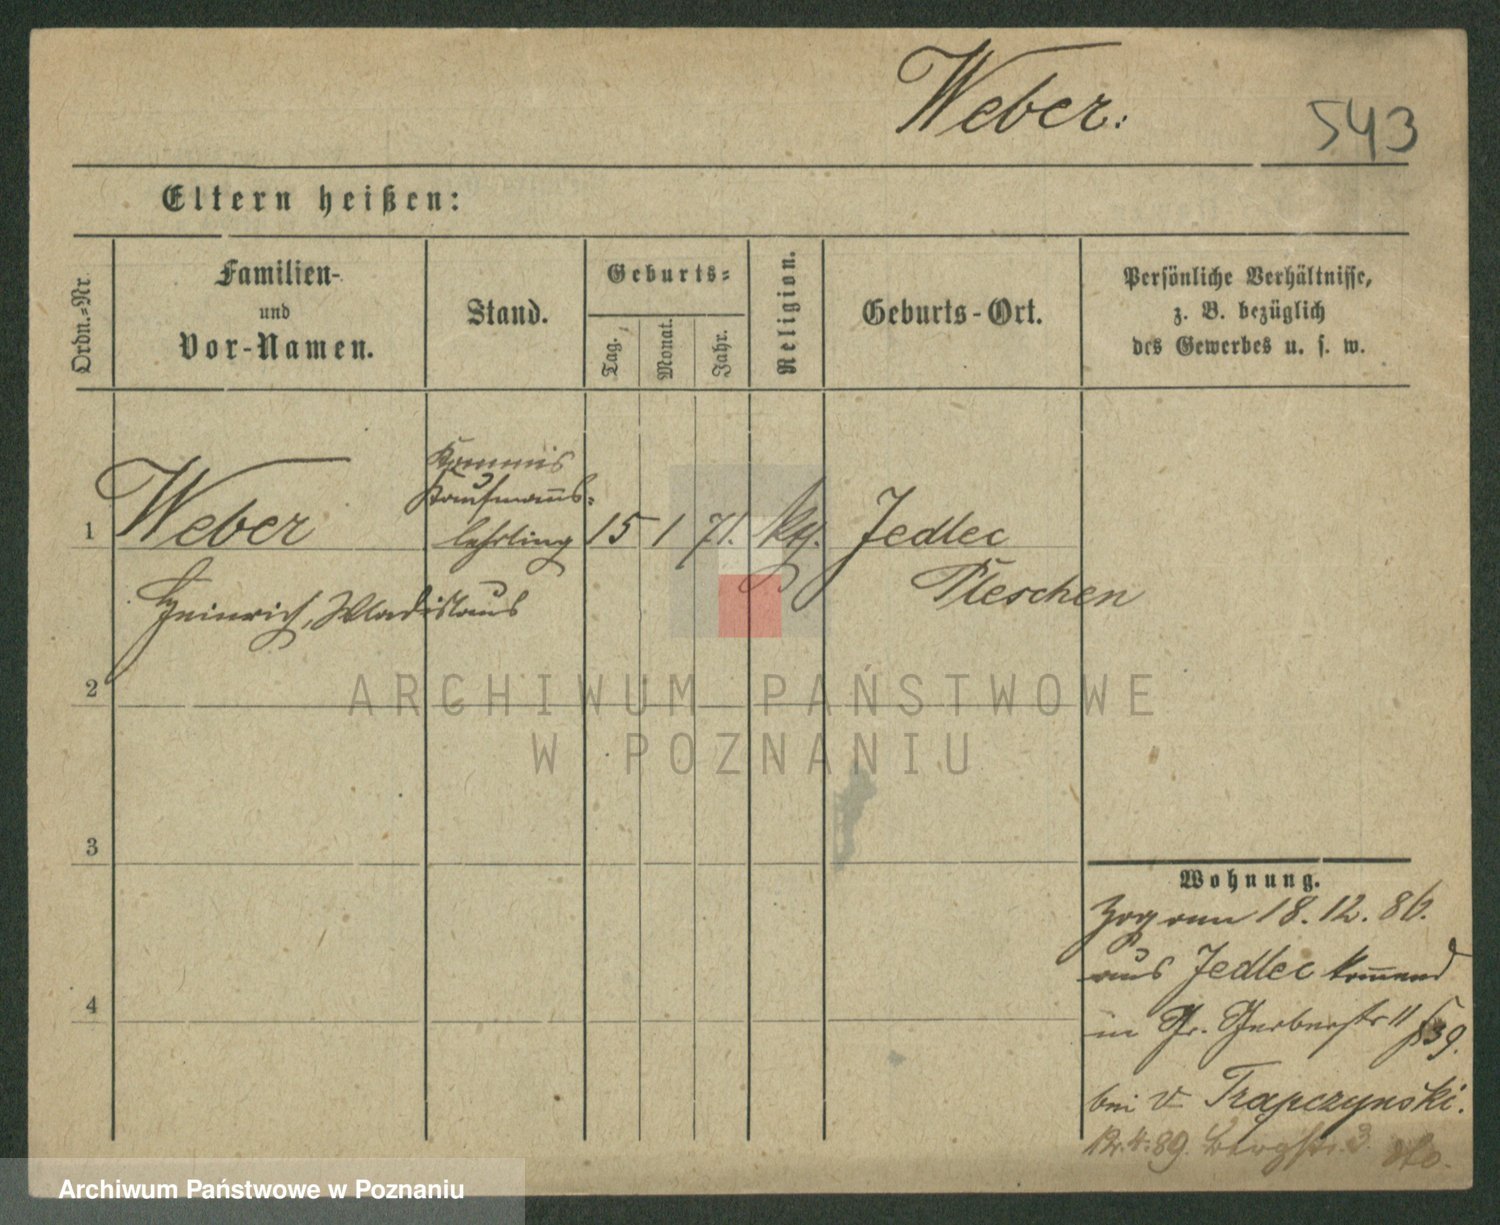 Weber.
543
Eltern heißen:
Ordn.=Nr.
Familien-
und
Vor-Namen.
Stand.
Geburts=
Tag.
Monat.
Jahr.
Religion.
Geburts-Ort.
Persönliche Verhältnisse,
z. B. bezüglich
des Gewerbes u. s. w.
Kommis
Kaufmanns-
1 Weber lehrling 15 1 71. ktl. Jedlec
Pleschen
Heinrich, Wladislaus
2
3
4
ARCHIWUM PAŃSTWOWE
W POZNANIU
Wohnung.
Zog am 18. 12. 86.
aus Jedlec kommend
in Gr. Gerberstr 11
539.
bei v Trapczynski.
4. 89. Bergstr. 3.
Archiwum Państwowe w Poznaniu